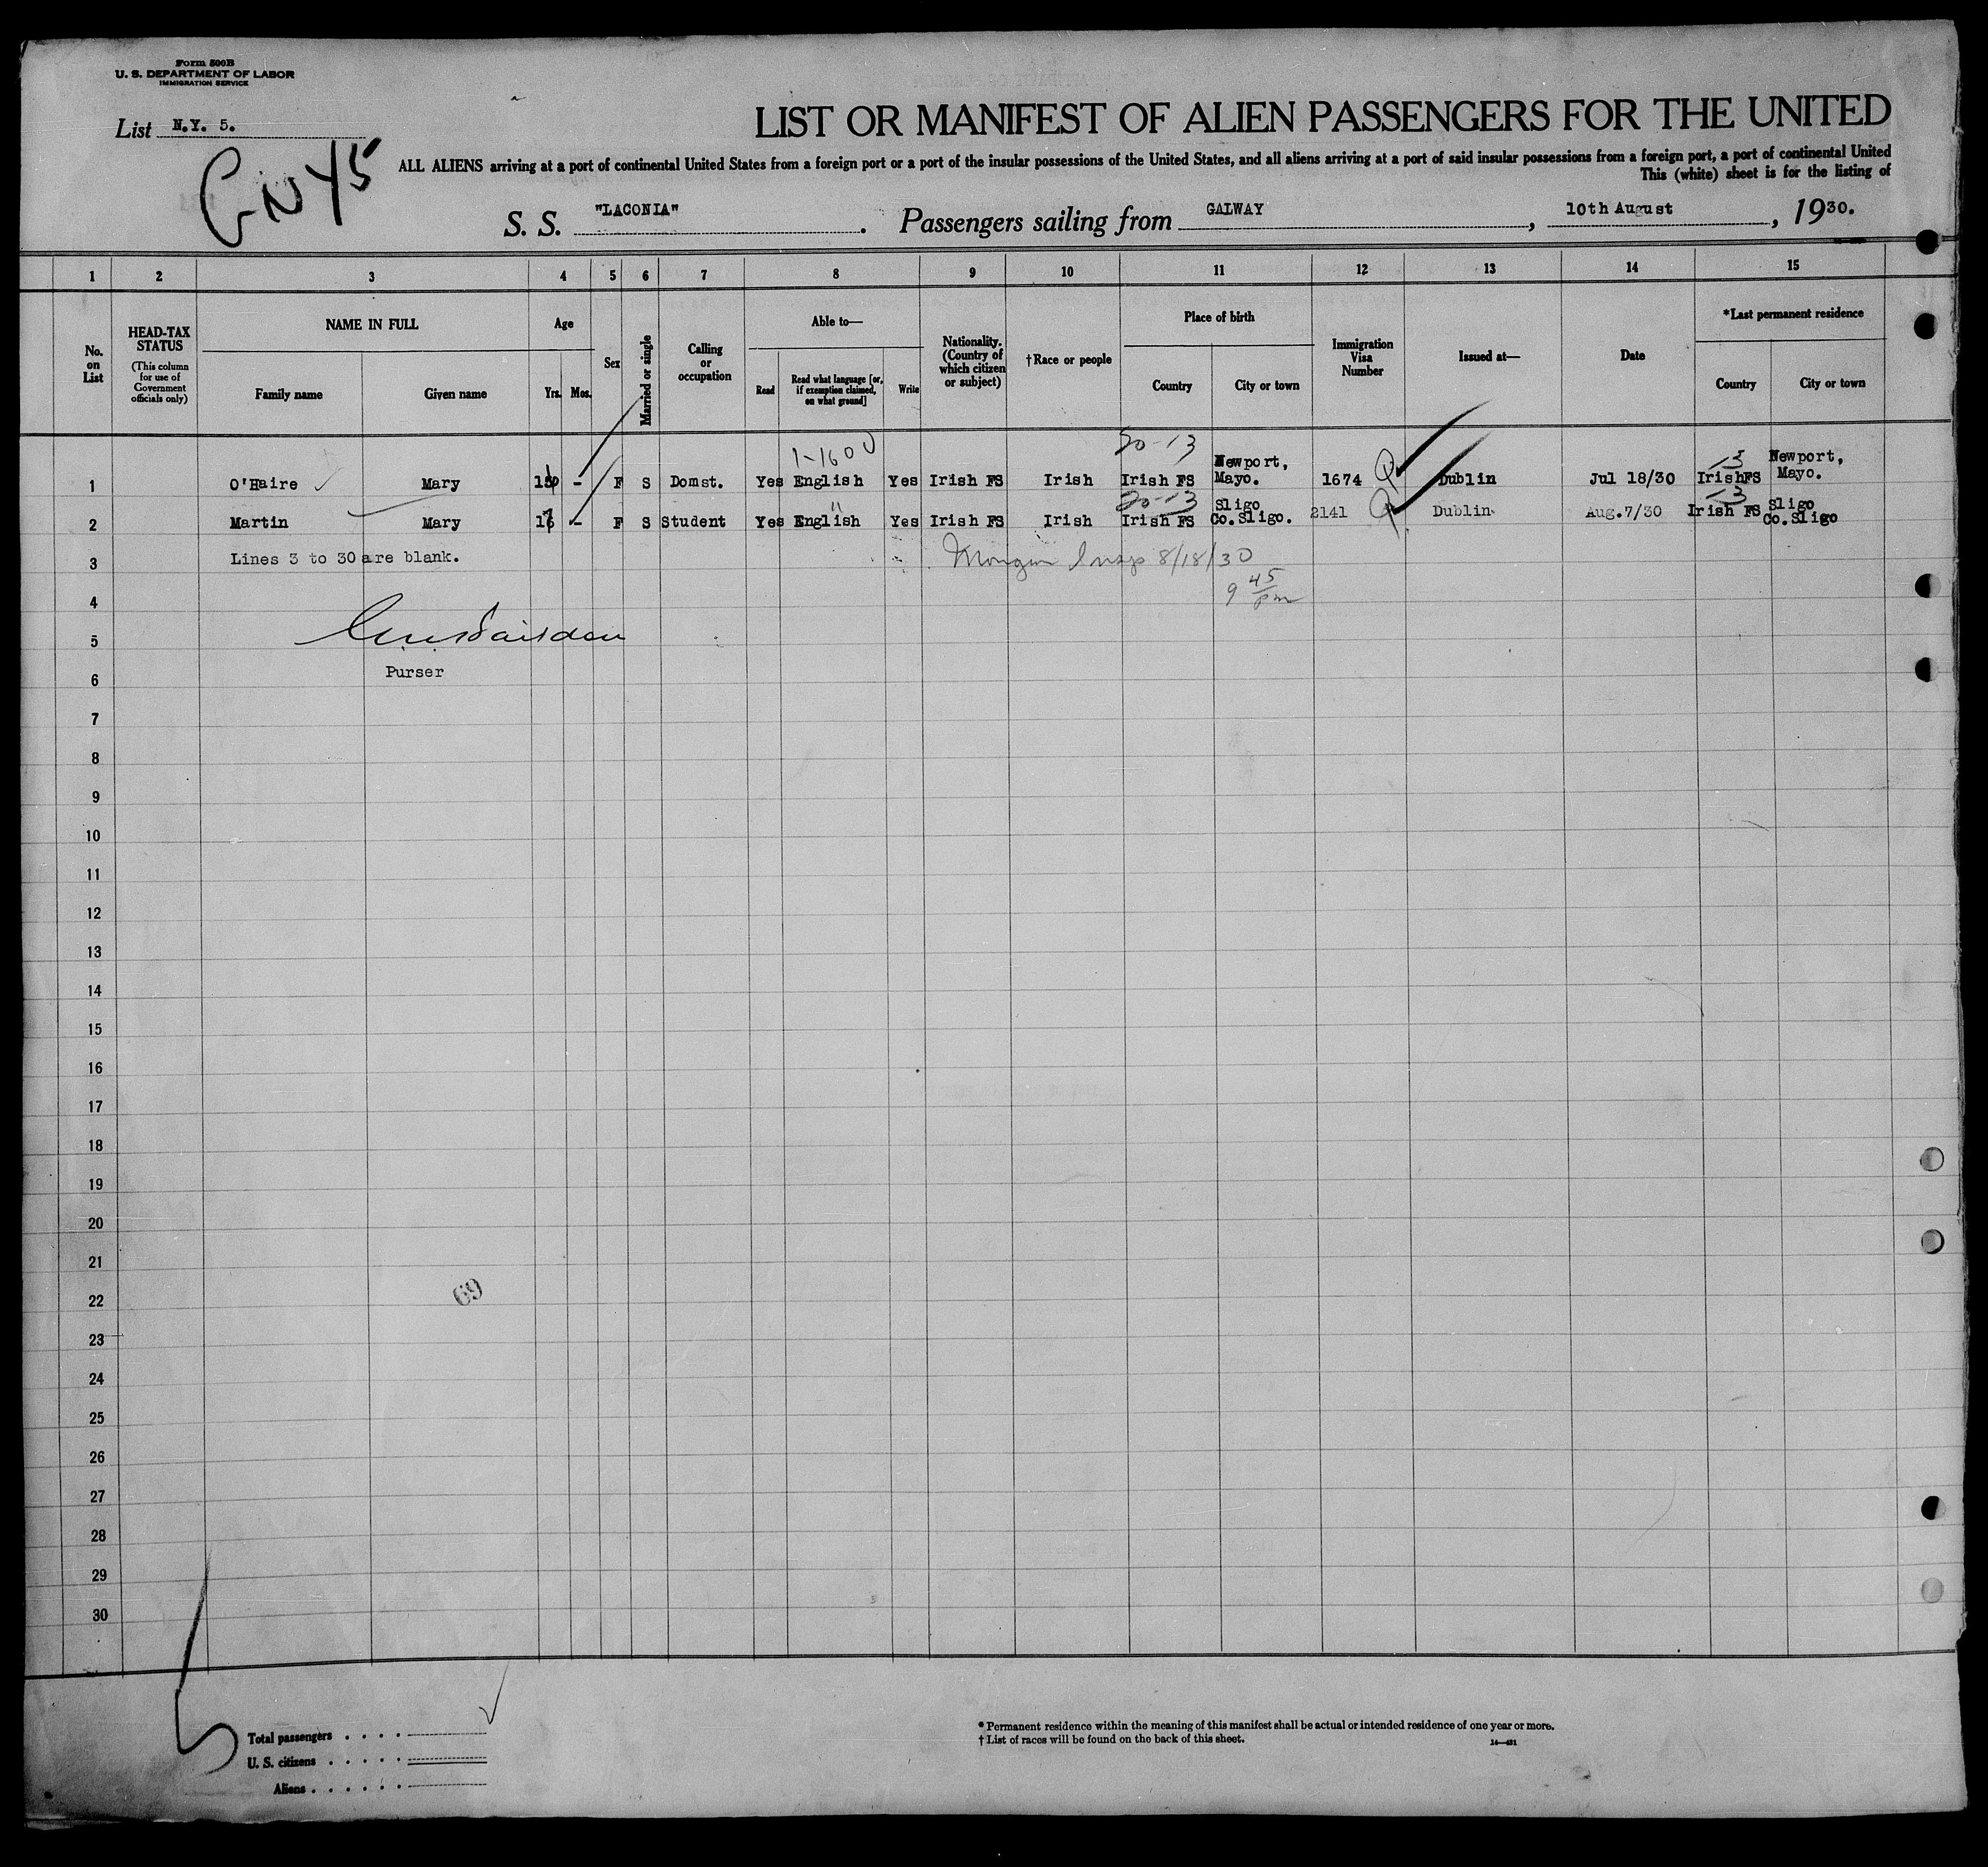 Form 500B
U. S. DEPARTMENT OF LABOR
IMMIGRATION SERVICE
List N.Y. 5.
LIST OR MANIFEST OF ALIEN PASSENGERS FOR THE UNITED
ALL ALIENS arriving at a port of continental United States from a foreign port or a port of the insular possessions of the United States, and all aliens arriving at a port of said insular possessions from a foreign port, a port of continental United
This (white) sheet is for the listing of
S. S. "LACONIA". Passengers sailing from GALWAY, 10th August, 1930.
1 2 3 4 5 6 7 8 9 10 11 12 13 14 15
No. on List
HEAD-TAX STATUS
(This column for use of Government officials only)
NAME IN FULL
Family name Given name
Age
Yrs. Mos.
Sex
Married or single
Calling or occupation
Able to—
Read
Read what language [or, if exemption claimed, on what ground]
Write
Nationality. (Country of which citizen or subject)
†Race or people
Place of birth
Country City or town
Immigration Visa Number
Issued at—
Date
*Last permanent residence
Country City or town
1-1600 20-13 13
1 O'Haire Mary F S Domst. Yes English Yes Irish FS Irish Irish FS Newport, Mayo. 1674 Q Dublin Jul 18/30 Irish FS Newport, Mayo.
" 20-13 13
2 Martin Mary 17 - F S Student Yes English Yes Irish FS Irish Irish FS Sligo Co.Sligo. 2141 Q Dublin Aug.7/30 Irish FS Sligo Co.Sligo
3 Lines 3 to 30 are blank. Insp 8/18/30
4 9 45 pm
5
6 Purser
7
8
9
10
11
12
13
14
15
16
17
18
19
20
21
22
69
23
24
25
26
27
28
29
30
Total passengers . . . .
U. S. citizens . . . . .
Aliens . . . . . .
* Permanent residence within the meaning of this manifest shall be actual or intended residence of one year or more.
† List of races will be found on the back of this sheet.
14—431